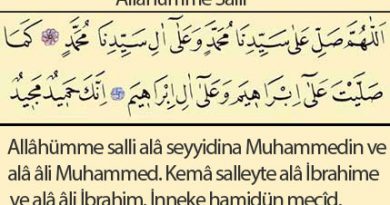 Allahümme Salli
اَللّٰهُمَّ صَلِّ عَلٰى سَيِّدِنَا مُحَمَّدٍ وَعَلٰٓى اٰلِ سَيِّدِنَا مُحَمَّدٍ ۞ كَمَا
صَلَّيْتَ عَلٰٓى اِبْرٰهٖيمَ وَعَلٰٓى اٰلِ اِبْرٰهٖيمَ ۞ اِنَّكَ حَمٖيدٌ مَجٖيدٌ
Allâhümme salli alâ seyyidina Muhammedin ve
alâ âli Muhammed. Kemâ salleyte alâ İbrahime
ve alâ âli İbrahim. İnneke hamidün mecîd.